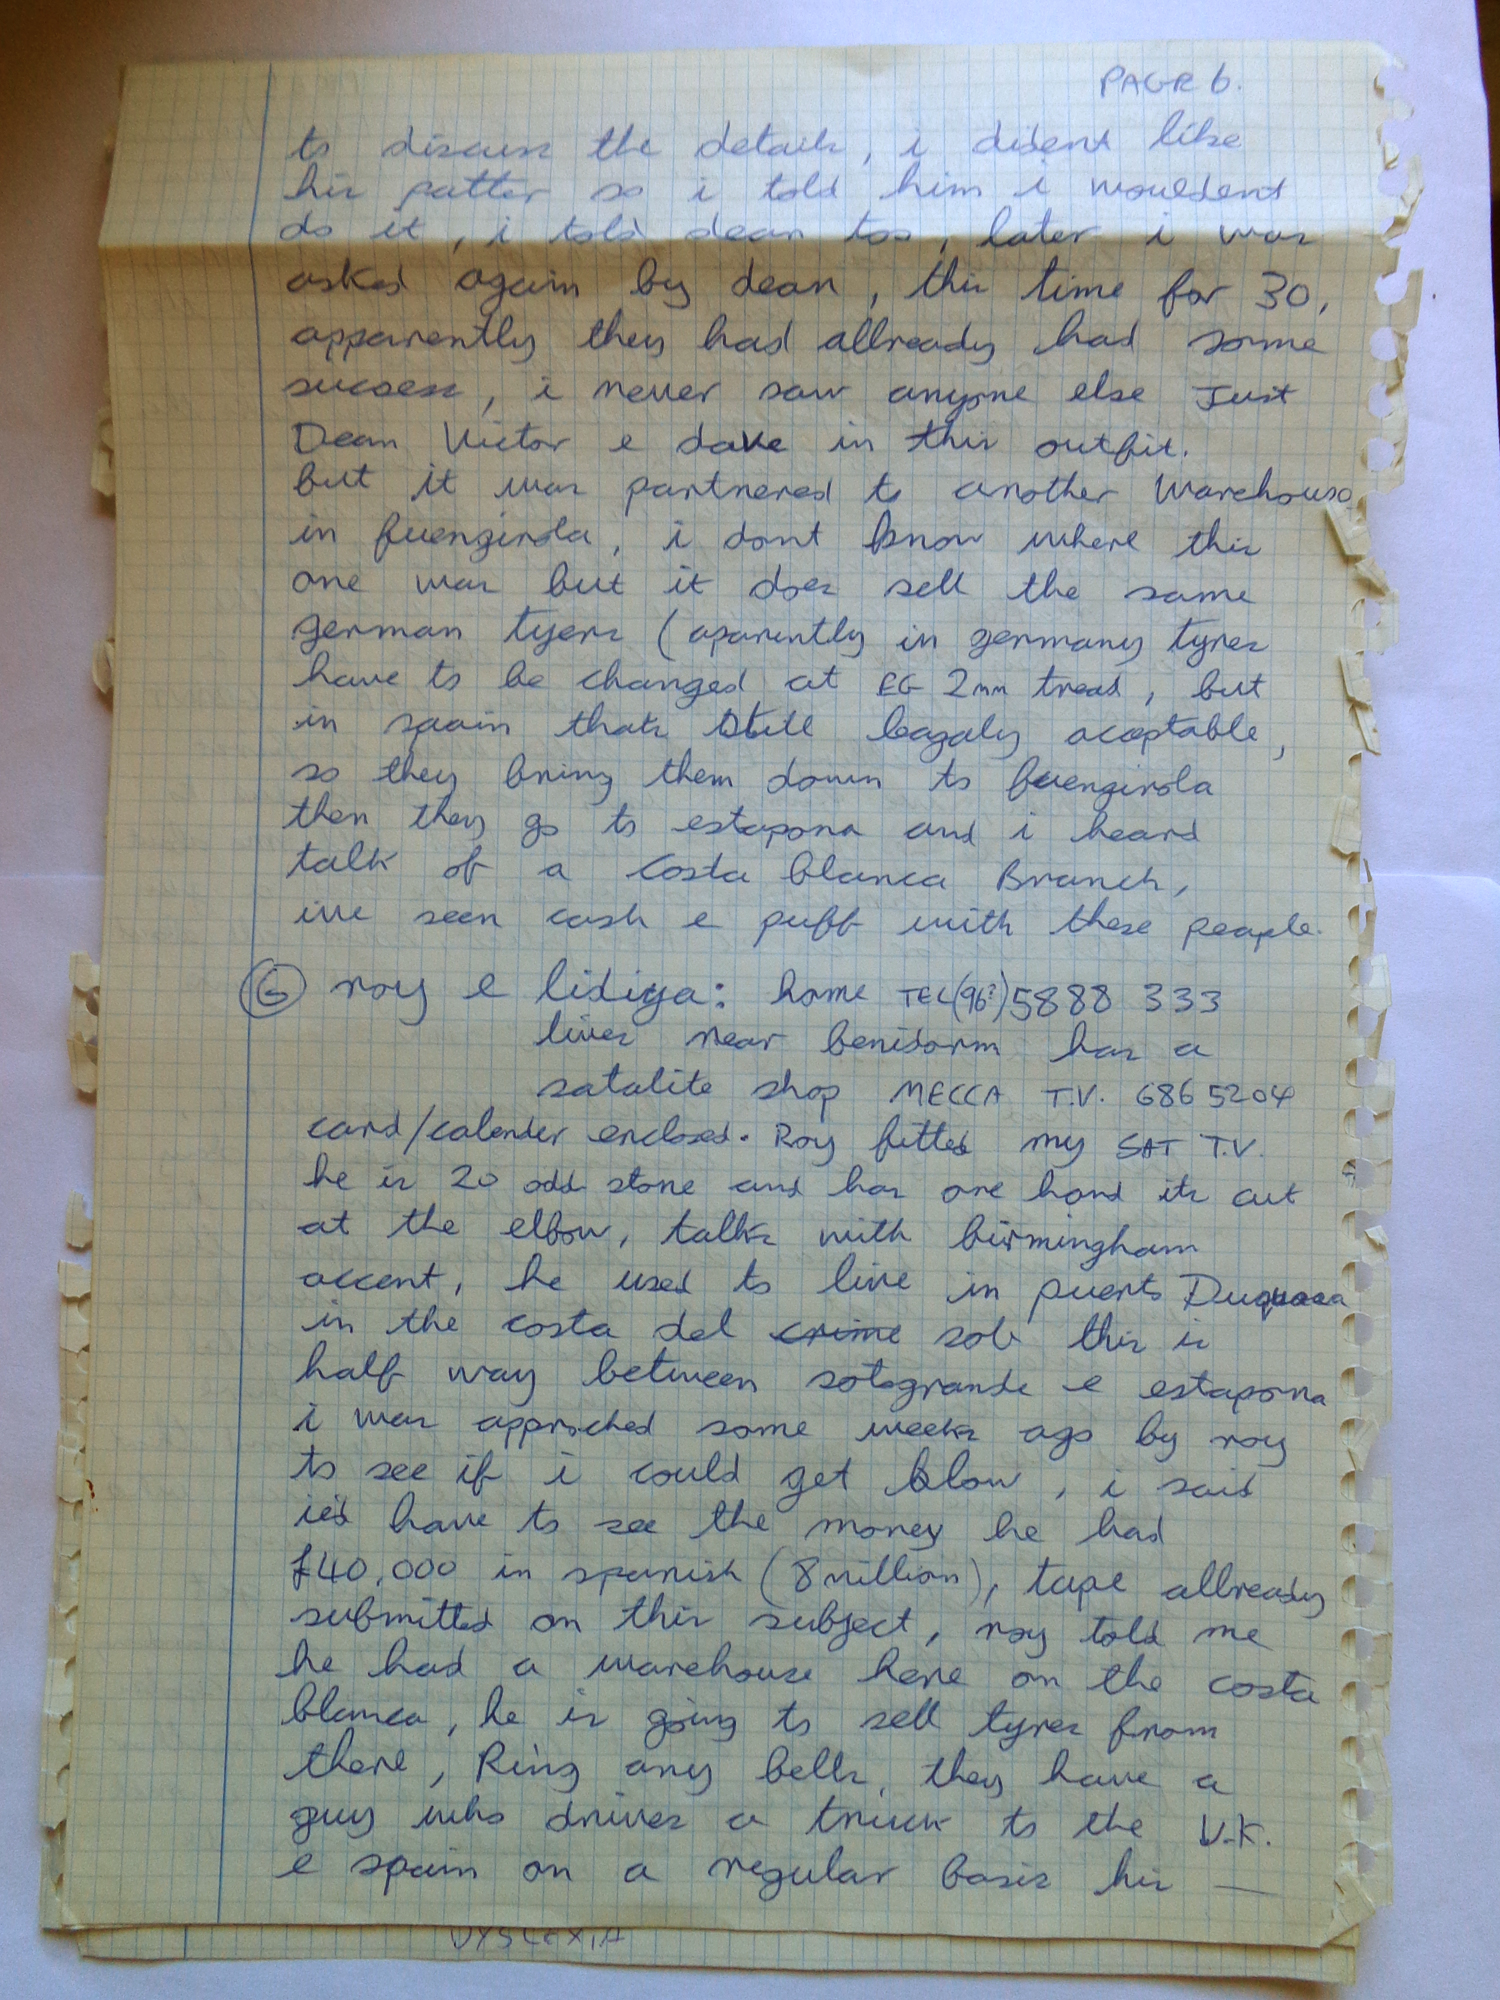 PAGE 6.
to discuss the details, i dident like
his patter so i told him i wouldent
do it, i told dean too, later i was
asked again by dean, this time for 30,
apparently they had allready had some
sucsess, i never saw anyone else Just
Dean Victor e dave in this outfit.
but it was partnered to another Warehouse
in fuengirola, i dont know where this
one was but it does sell the same
german tyers (aparently in germany tyres
have to be changed at EG 2mm tread, but
in spain thats still leagaly acceptable,
so they bring them down to fuengirola
then they go to estapona and i heard
talk of a Costa blanca Branch,
ive seen cash e puff with these people.
G roy e lidiya: home TEL(96?)5888 333
lives near benidorm has a
satalite shop MECCA T.V. 686 5204
card/calender enclosed. Roy fitted my SAT T.V.
he is 20 odd stone and has one hand its cut
at the elbow, talks with birmingham
accent, he used to live in puerto Duquesa
in the costa del crime sol this is
half way between sotogrande e estapona
i was approched some weeks ago by roy
to see if i could get blow, i said
ied have to see the money he had
£40,000 in spanish (8 million), tape allready
submitted on this subject, roy told me
he had a warehouse here on the costa
blanca, he is going to sell tyres from
there, Ring any bells, they have a
guy who drives a truck to the U.K.
e spain on a regular basis his —
DYSLEXIA